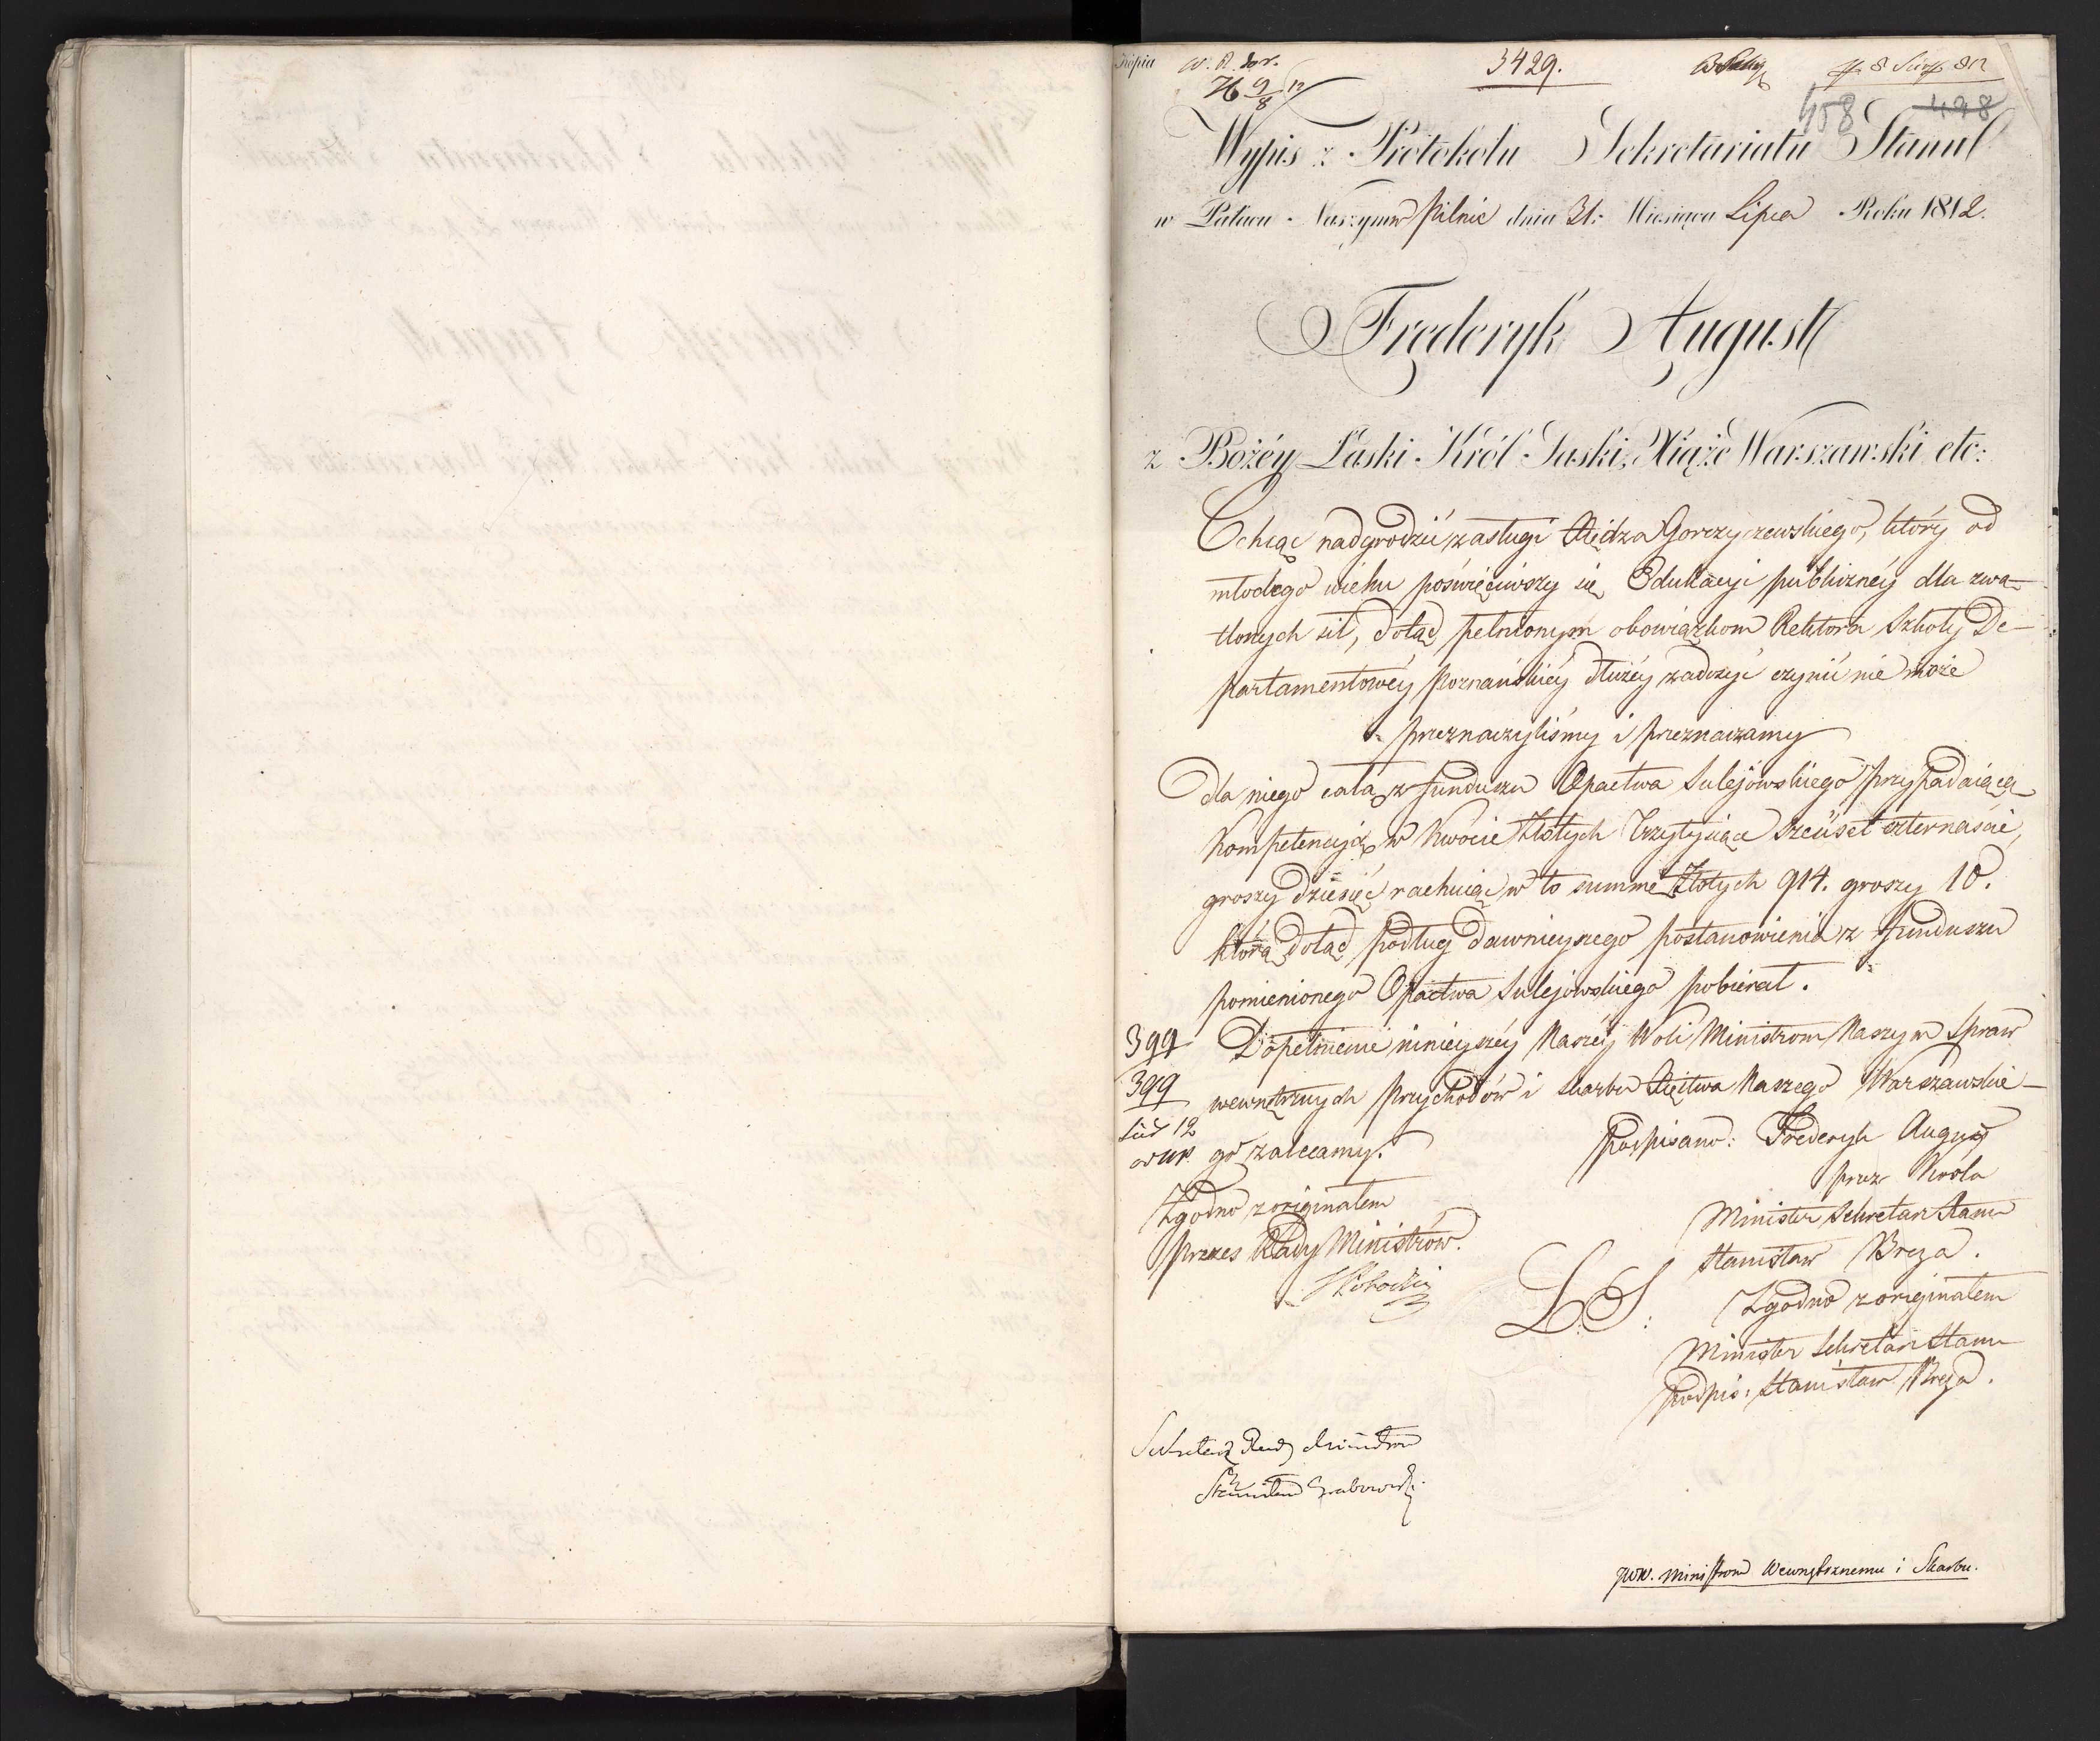 Kopia
3429.
458 498
Wypis z Protokołu Sekretariatu Stanu
w Pałacu Naszym w Pilnic dnia 31: Miesiąca Lipca Roku 1812.
Fręderyk August
z Bożéy Łaski Król Saski, Xiąże Warszawski etc:
Chcąc nadgrodzić zasługi Xiędza Gorczyczewskiego, który od
młodego wieku poświęciwszy się Edukacyi publiczney dla zwą-
tlonych sił, dotąd pełnionym obowiązkom Rektora Szkoły De-
partamentowéy poznańskiéy dłużéy zadosyć czynić nie może
przeznaczyliśmy i przeznaczamy
dla niego całą z funduszu Opactwa Sulejowskiego przypadaiącą
Kompetencyją w kwocie Złotych Trzytysiące Sześćset czternaście,
groszy dziesięć rachuiąc w to summę Złotych 914. groszy 10.
którą dotąd podług dawnieyszego postanowienia z funduszu
pomienionego Opactwa Sulejowskiego pobierał.
399 Dopełnienie ninieyszéy Naszéy Woli Ministrom Naszym Spraw
399 wewnętrznych Przychodów i Skarbu Xięstwa Naszego Warszawskie-
go zalecamy.
Podpisano: Frederyk August
przez Króla
Minister Sekretarz Stanu
Stanisław Breza.
Zgodno z originałem
Prezes Rady Ministrów.
L. S.
Zgodno z originałem
Minister Sekretarz Stanu
podpis: Stanisław Breza.
Sekretarz Rady Ministrów
Stanisław Grabowski.
JWW. Ministrom Wewnętrznemu i Skarbu.